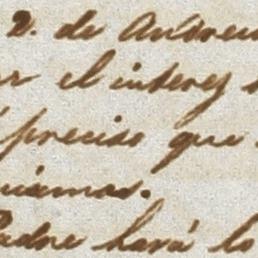 2. de Andreu
el interes
preciso que
Padre hará lo